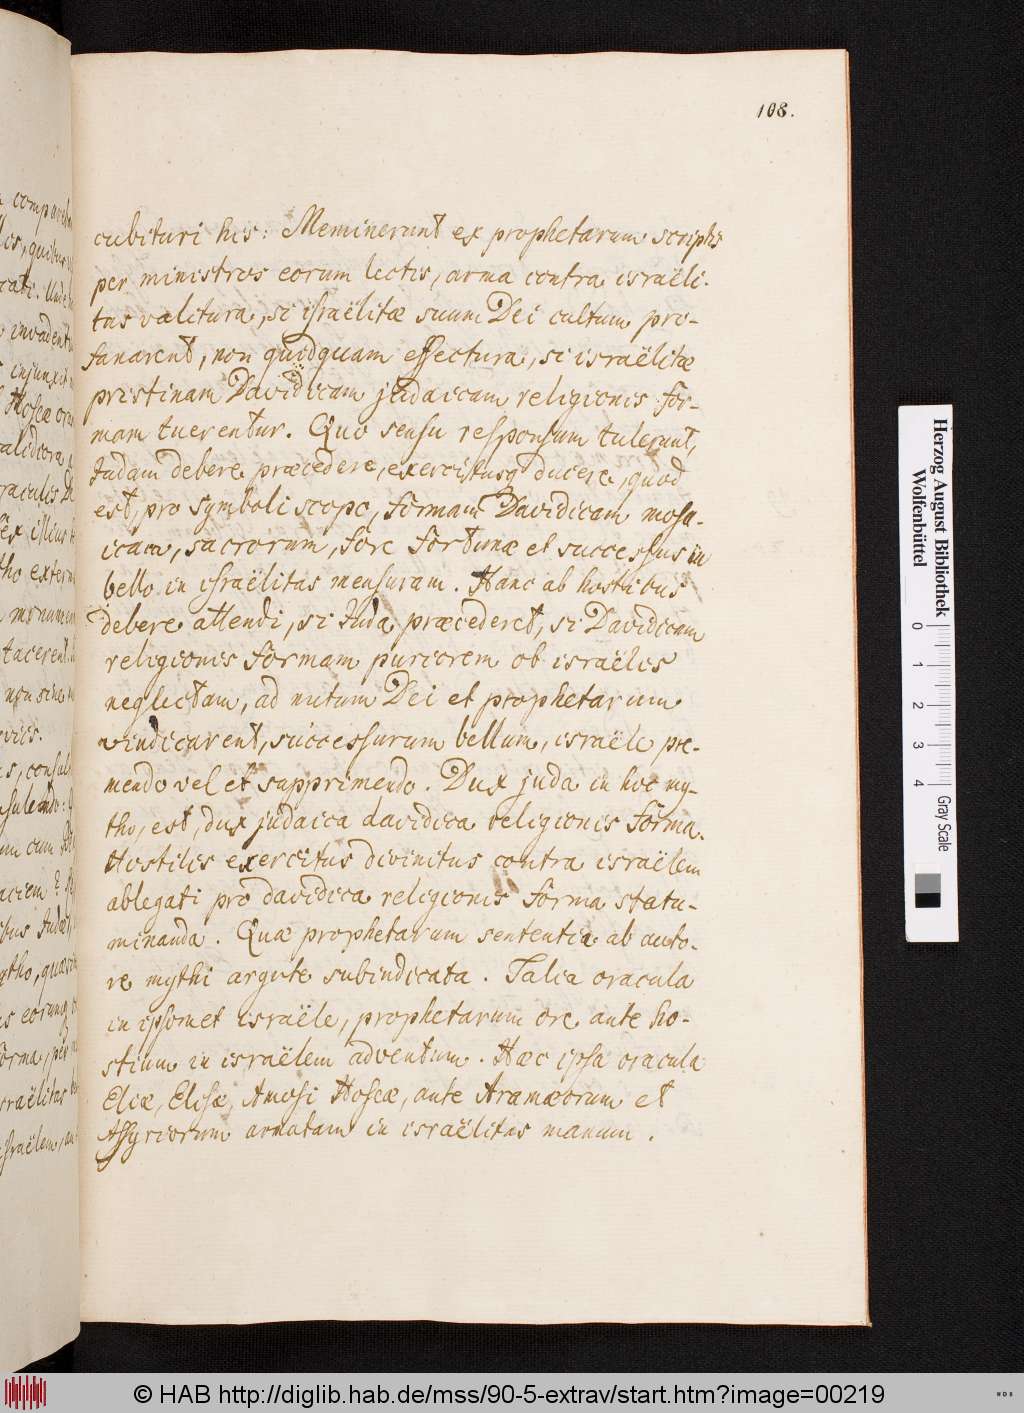 108.
cubituri his: Meminerunt ex prophetarum scriptis
per ministros eorum lectis, arma contra israëli-
tas valitura, si israëlitæ suum Dei cultum pro-
fanarent, non quidquam effectura, si israëlitæ
pristinam Davidicam judaicam religionis for-
mam tuerentur. Quo sensu responsum tulerunt,
Judam debere præcedere, exercitusq ducere, quod
est, pro symboli scopo, formam Davidicam mosa-
icam, sacrorum, fore fortunæ et successus in
bello in israëlitas mensuram. Hanc ab hostibus
debere attendi, si Juda præcederet, si Davidicam
religionis formam puriorem ob israëlis
neglectam, ad nutum Dei et prophetarum
vindicarent, successurum bellum, israële pre-
mendo vel et supprimendo. Dux juda in hoc my-
tho, est, dux judaica davidica religionis forma.
Hostilis exercitus divinitus contra israëlem
ablegati pro davidica religionis forma statu-
minanda. Quæ prophetarum sententia ab auto-
re mythi argute subindicata. Talia oracula
in ipsomet israële, prophetarum ore ante ho-
stium in israëlem adventum. Hæc ipsa oracula
Eliæ, Elisæ, Amosi Hoseæ, ante Aramæorum et
Assyriorum armatam in israëlitas manum.
Herzog August Bibliothek
Wolfenbüttel
0 1 2 3 4 Gray Scale
© HAB http://diglib.hab.de/mss/90-5-extrav/start.htm?image=00219